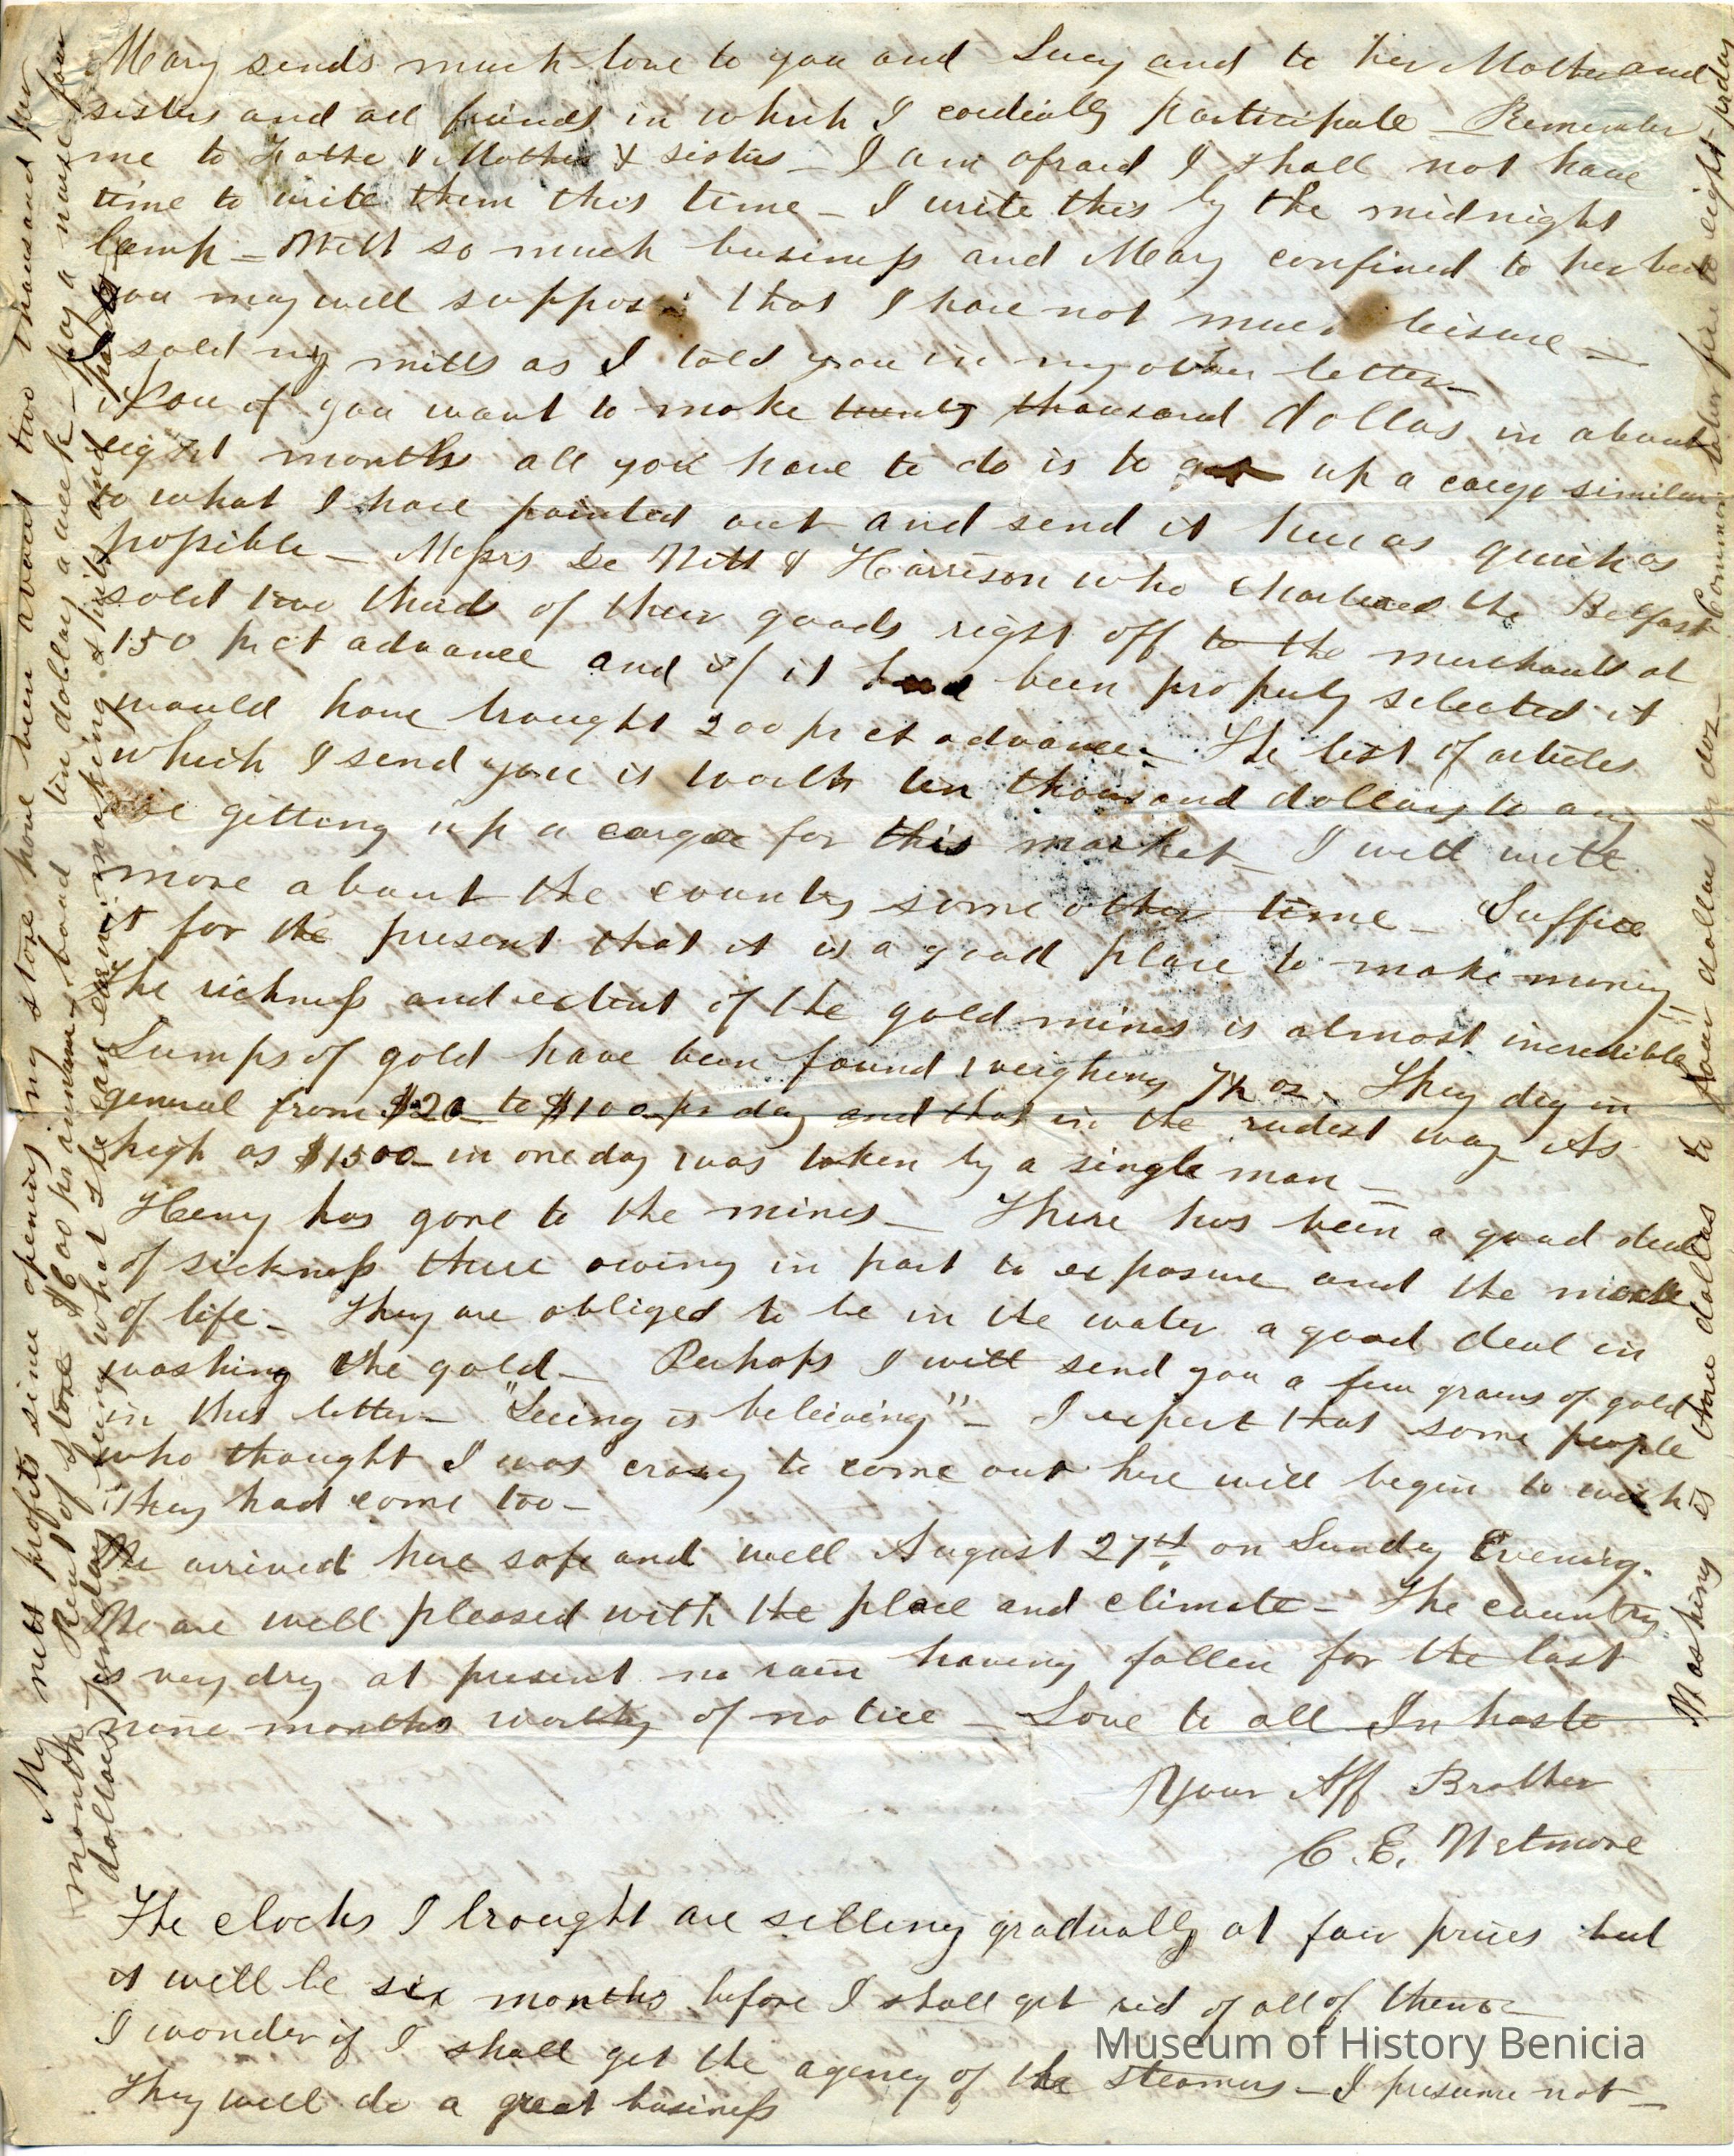 Mary sends much love to you and Lucy and to her Mother and
sisters and all friends in which I cordially participate _ Remember
me to Father & Mother & sisters _ I am afraid I shall not have
time to write them this time _ I write this by the midnight
lamp _ With so much business and Mary confined to her bed
you may well suppose that I have not much leisure _
sold my mills as I told you in my other letter _
Now if you want to make twenty thousand dollars in about
eight months all you have to do is to get up a cargo similar
to what I have pointed out and send it here as quick as
possible _ Messrs De Witt & Harrison who chartered the Belfast
sold two thirds of their goods right off to the merchants at
150 pr ct advance and if it had been properly selected it
would have brought 200 pr ct advance _ The list of articles
which I send you is worth ten thousand dollars to any
one getting up a cargo for this market _ I will write
more about the country some other time _ Suffice
it for the present that it is a good place to make money _
The richness and extent of the gold mines is almost incredible!!
Lumps of gold have been found weighing 7½ oz. They dig in
general from $20 to $100 pr day and that in the rudest way As
high as $1500 in one day was taken by a single man _
Henry has gone to the mines _ There has been a good deal
of sickness there owing in part to exposure and the mode
of life _ They are obliged to be in the water a good deal in
washing the gold _ Perhaps I will send you a few grains of gold
in this letter _ "Seeing is believing" _ I expect that some people
who thought I was crazy to come out here will begin to wish
they had come too _
We arrived here safe and well August 27th on Sunday Evening.
We are well pleased with the place and climate _ The country
is very dry at present no rain having fallen for the last
nine months worthy of notice _ Love to all In haste
Your Aff Brother
C. E. Wetmore
The clocks I brought are selling gradually at fair prices but
it will be six months before I shall get rid of all of them _
I wonder if I shall get the agency of the steamers _ I presume not _
They will do a great business
My nett profits since opening my store have been about two thousand per
month Rent of store $600 pr annum, board ten dollars a week _ pay a nurse four
dollars per day being what she can earn in making & suits and pants _
Washing is three dollars to four dollars pr doz _ Common labor five to eight pr day
Museum of History Benicia